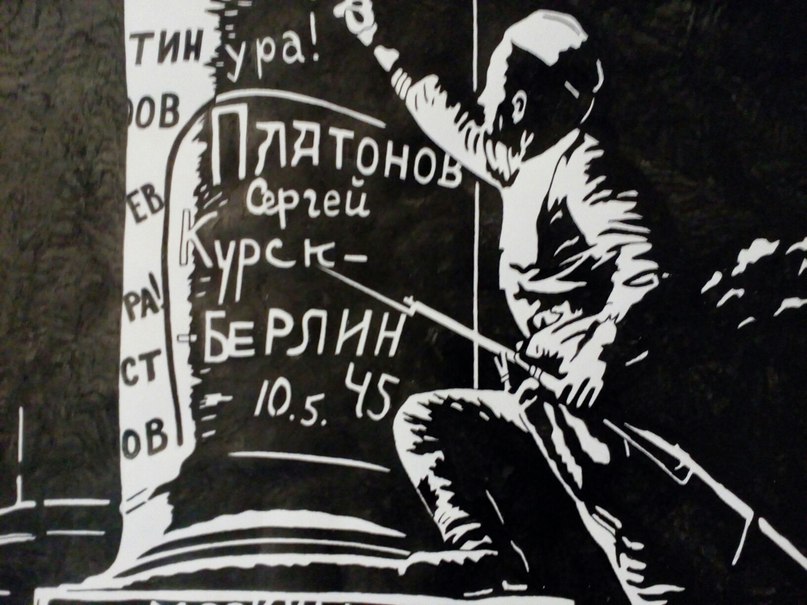 ТИН
ура!
ОВ
Платонов
ЕВ
Сергей
Курск-
РА!
Берлин
СТ
10.5.45
ОВ